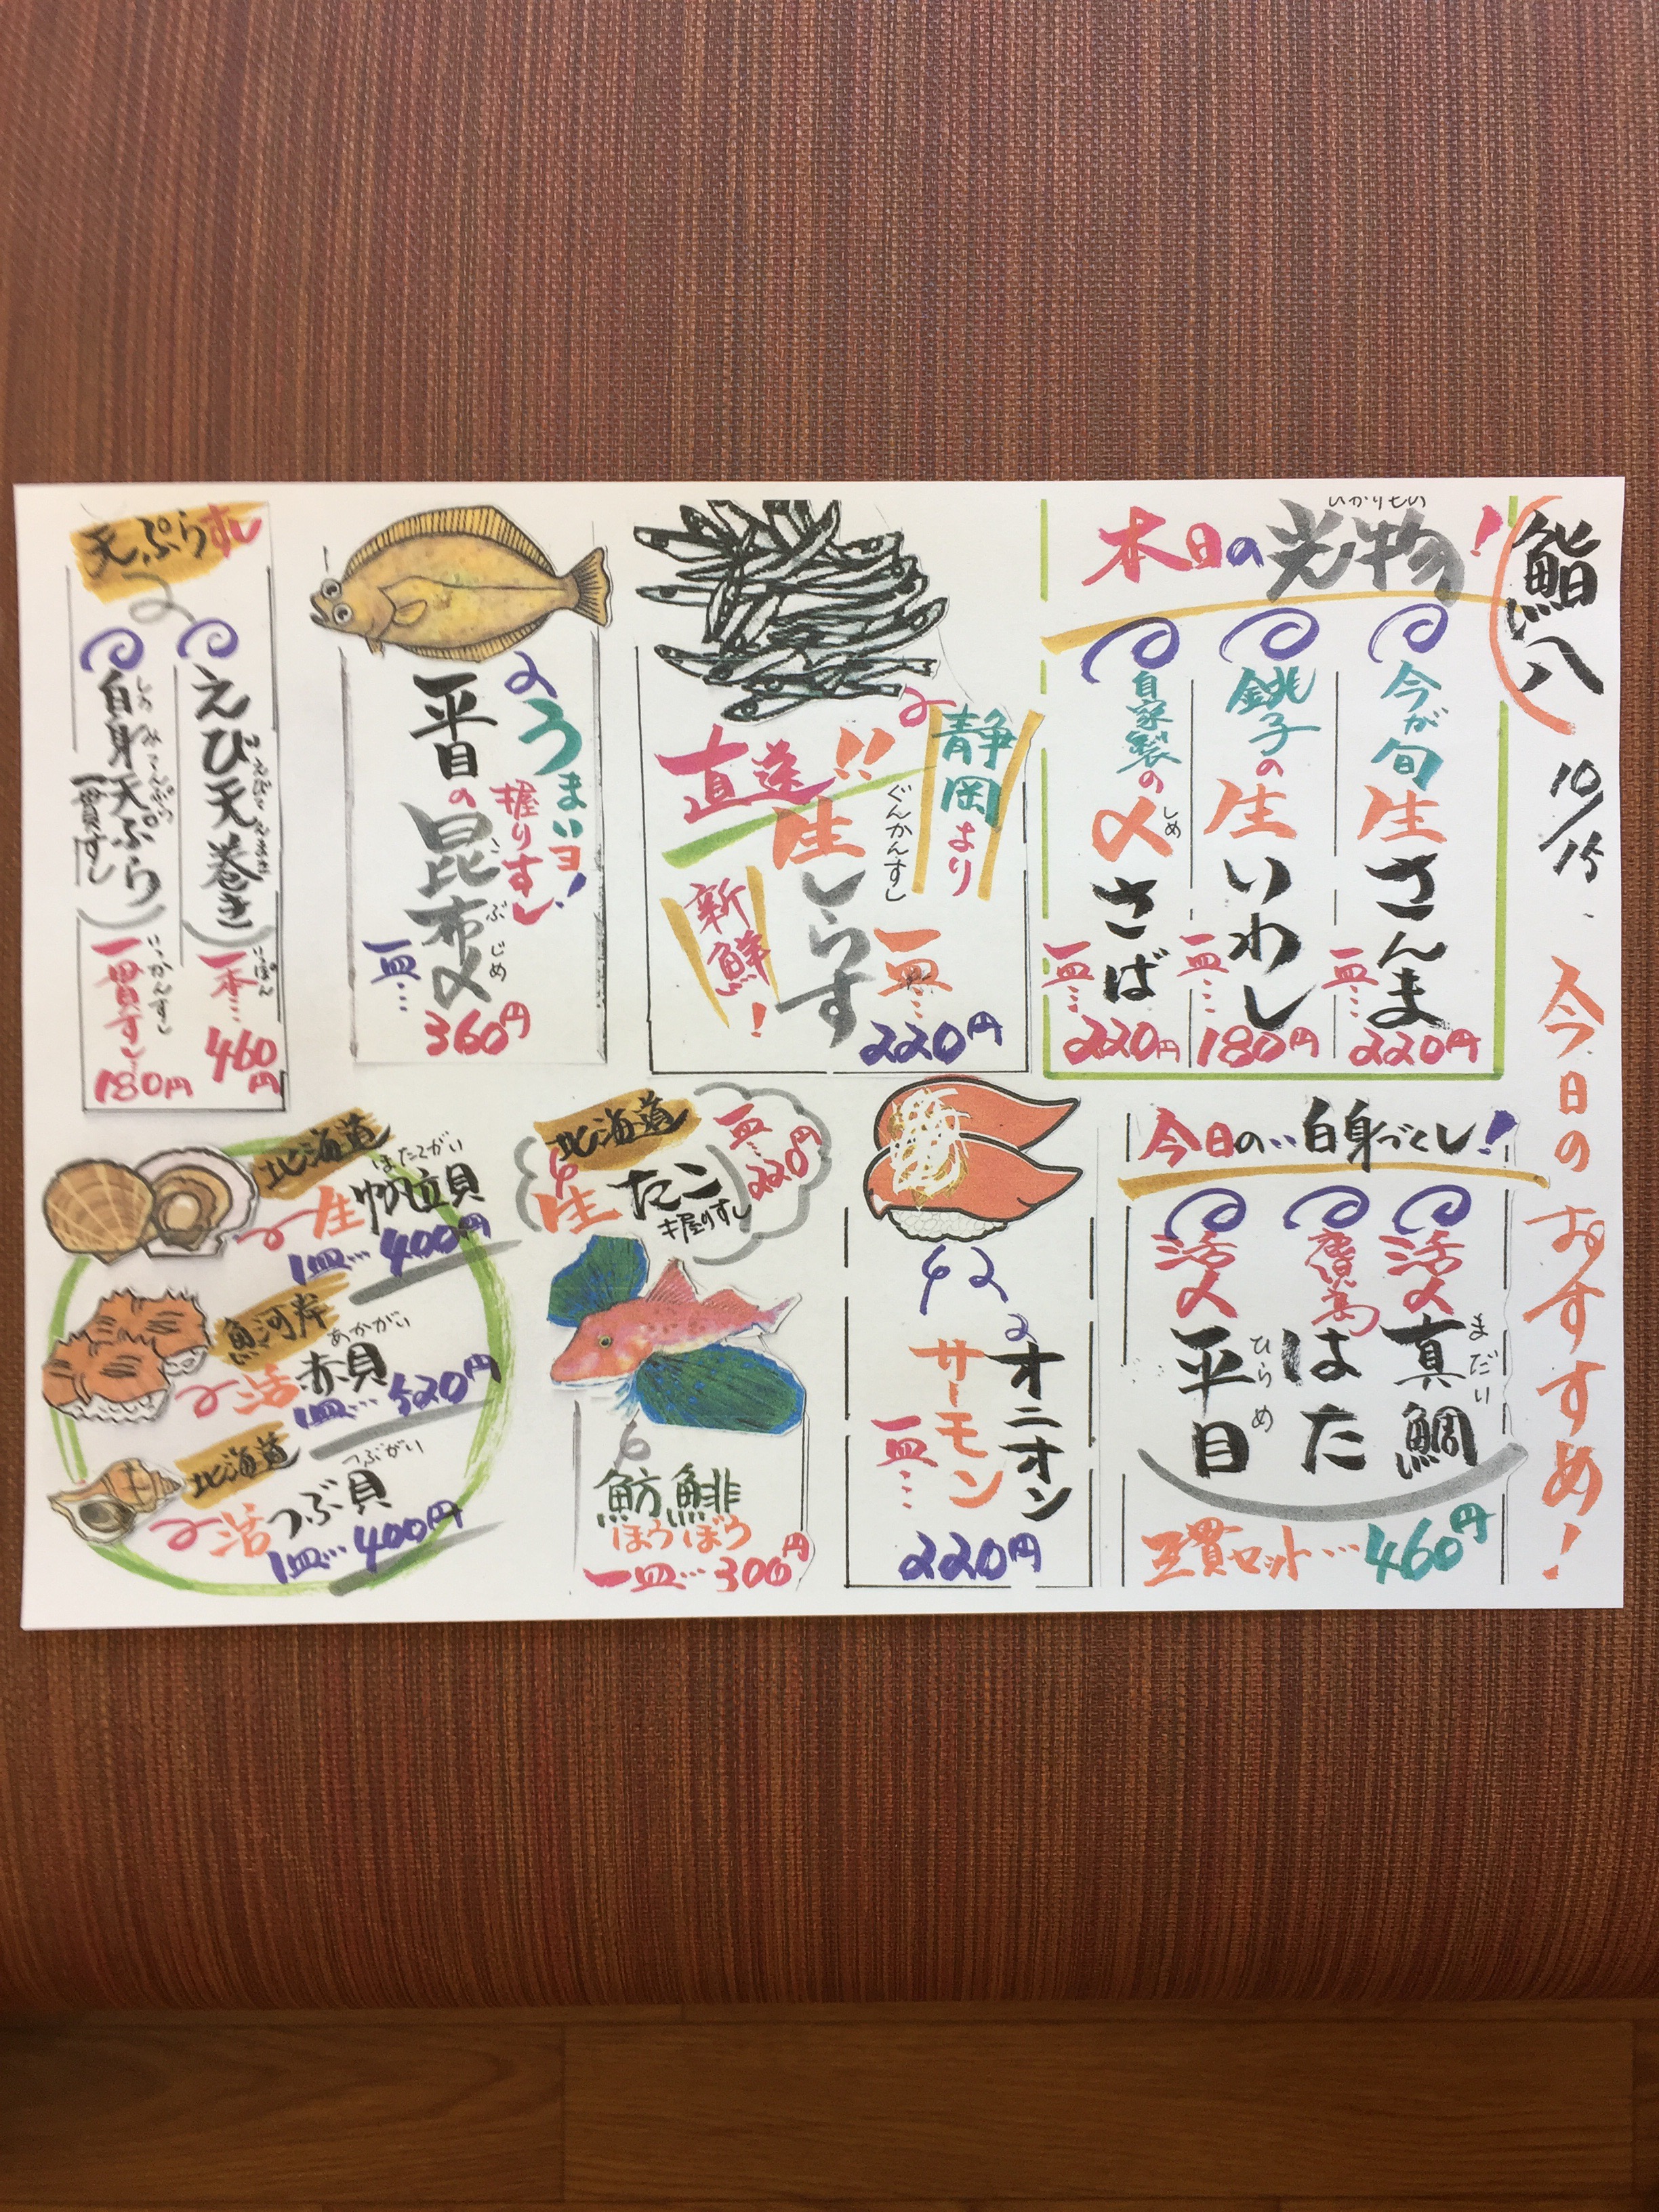 鮨八
10/15.
今日のおすすめ!
ひかりもの
本日の光物!
今が旬
生さんま
一皿…
220円
銚子の
生いわし
一皿…
180円
自家製の
〆さば
しめ
一皿…
220円
静岡より
直送!!
ぐんかんずし
生しらす
新鮮!
一皿…
220円
うまいヨ!
握りすし
平目の昆布〆
こぶじめ
一皿…
360円
天ぷらすし
えび天巻き
一本…
いっぽん
460円
白身天ぷら
一貫すし
一貫すし
いっかんずし
180円
今日の…白身づくし!
活〆
真鯛
まだい
はた
活〆
平目
ひらめ
三貫セット…460円
オニオン
サーモン
一皿…
220円
北海道
生たこ
握りすし
一皿…
220円
魴鮄
ほうぼう
一皿…300円
北海道
ほたてがい
生帆立貝
1皿…400円
魚河岸
あかがい
活赤貝
1皿…520円
北海道
つぶがい
活つぶ貝
1皿…400円